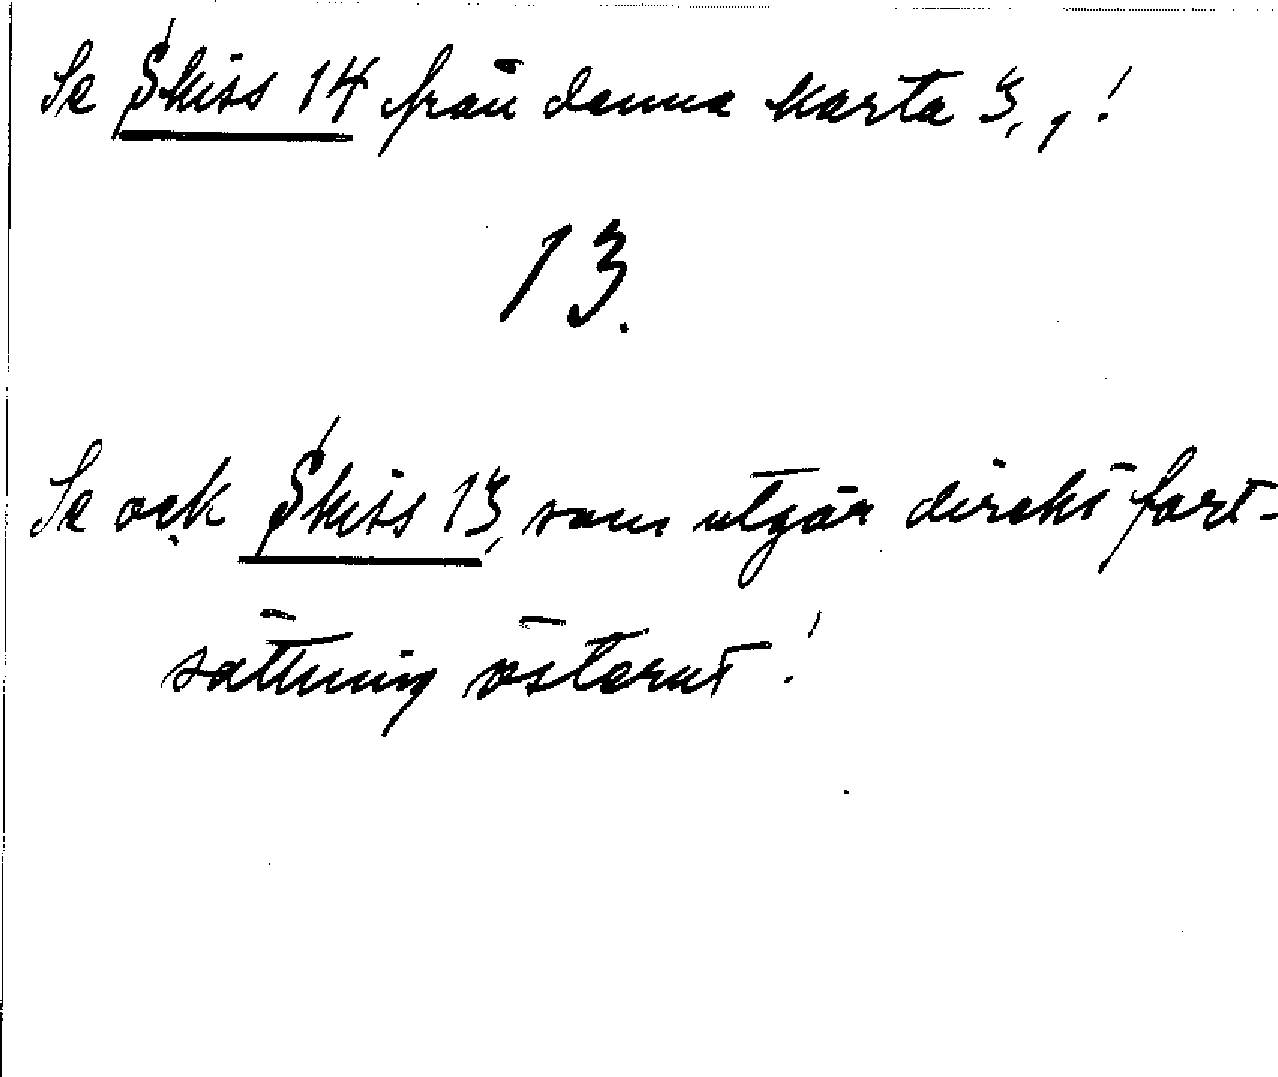 Se Skiss 14 från denna karta 3, !
13.
Se ock Skiss 13, som utgör direkt fort-
sättning österut!